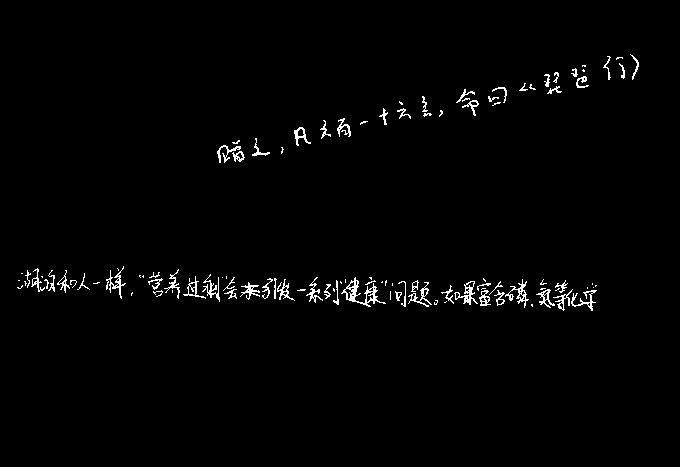 赠之，凡六百一十六言，命曰《琵琶行》
湖泊和人一样，“营养过剩”会引发一系列“健康”问题。如果富含磷、氮等化学